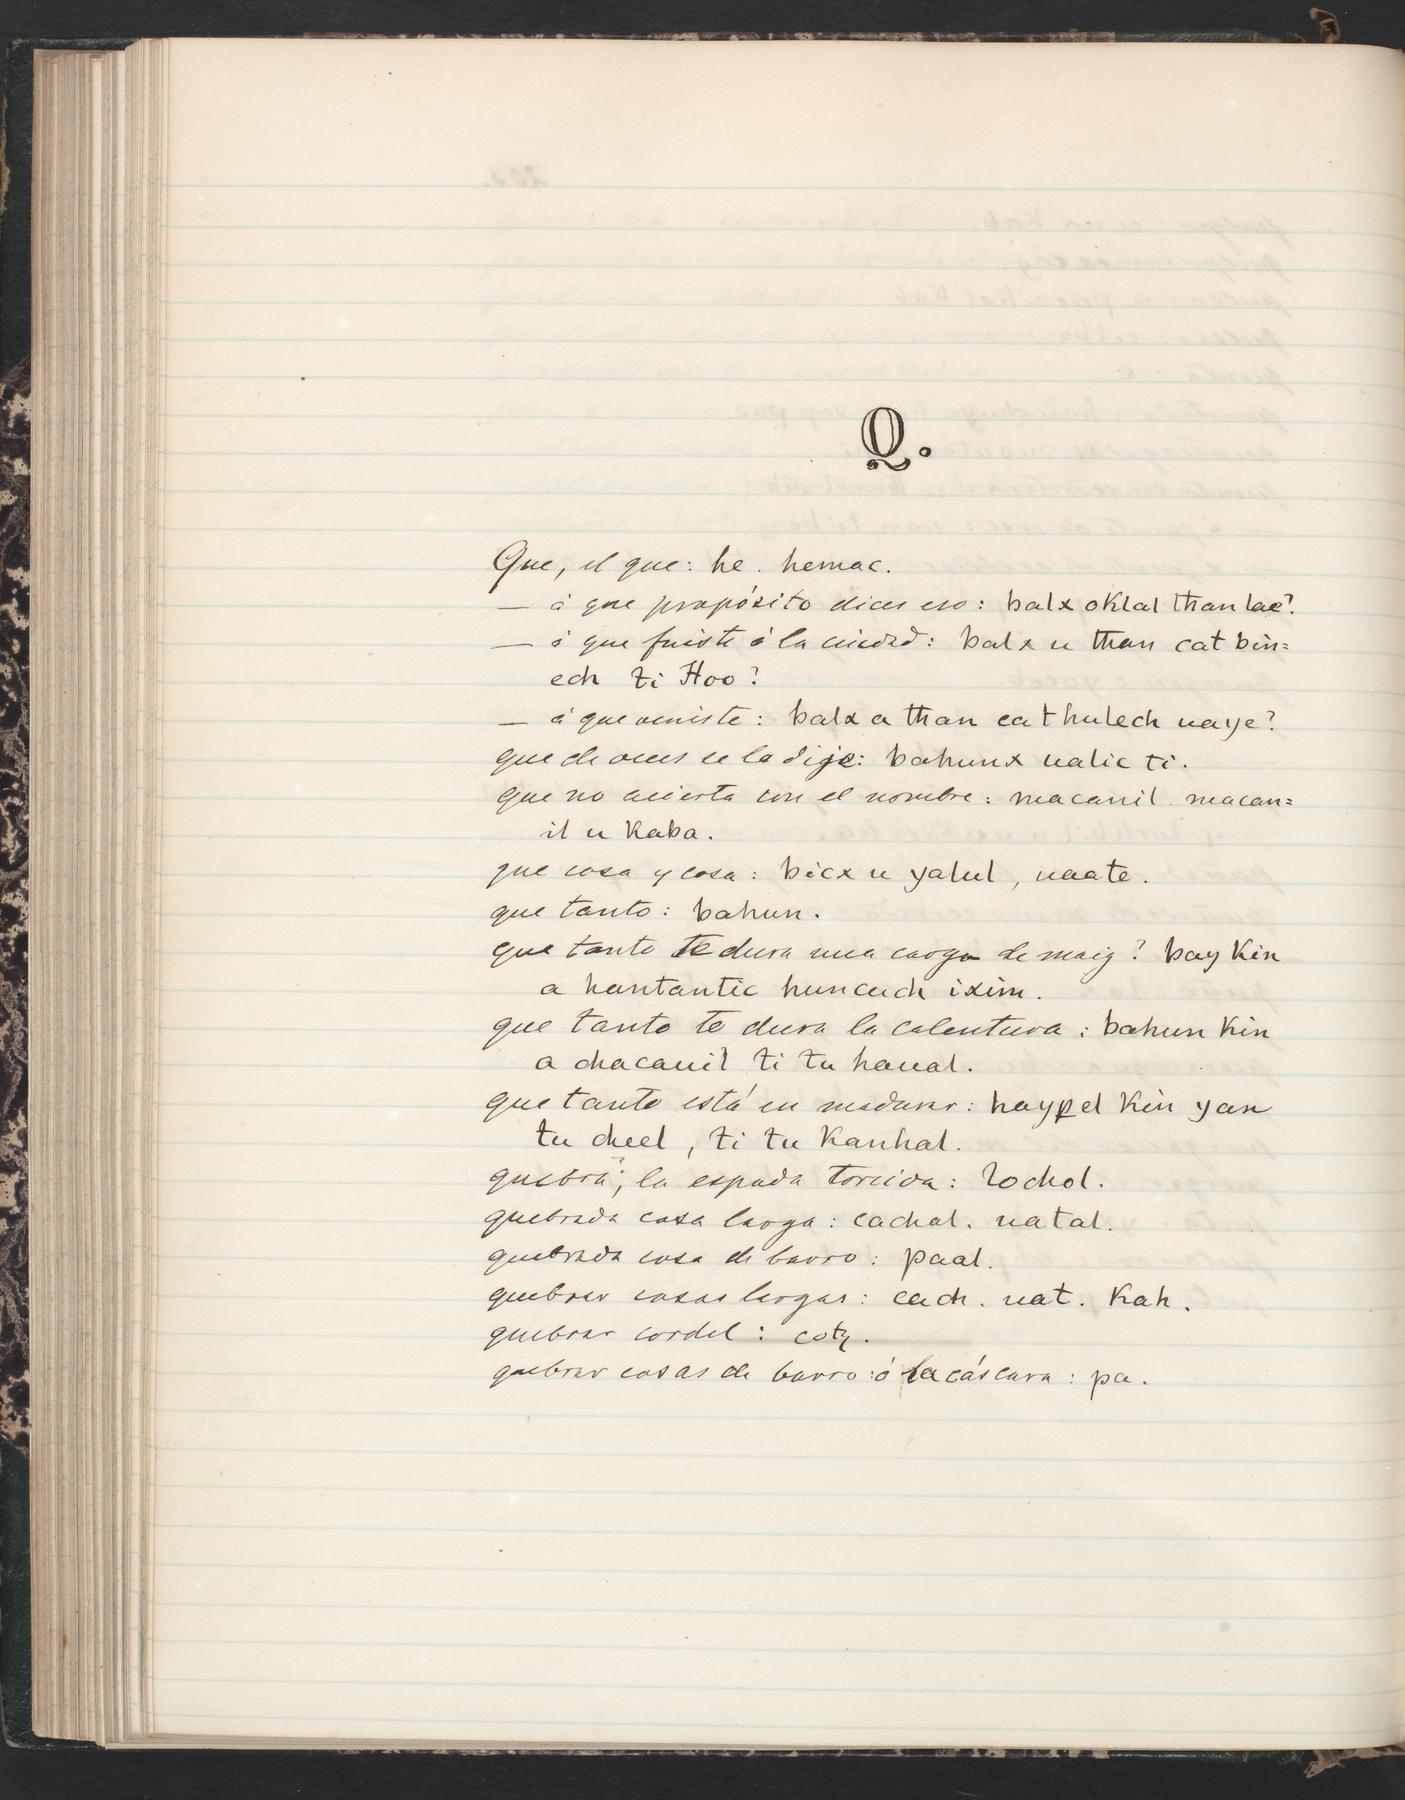 Q.
Que, el que: he. hemac.
— á que propósito dices eso: balx oklal than lae?
— á que fuiste á la ciudad: balx u than cat bin=
ech ti Hoo?
— á que veniste: balx a than cat hulech uaye?
que de veces se la dije: bahunx ualic ti.
que no acierta con el nombre: macanil. macan=
il u kaba.
que cosa y cosa: bicx u yalul, naate.
que tanto: bahun.
que tanto te dura una carga de maiz? bay kin
a hantantic huncuch ixim.
que tanto te dura la calentura: bahun kin
a chacauil ti tu haual.
que tanto está en madurar: haypel kin yan
tu cheel, ti tu kanhal.
quebra; la espada torcida: lochol.
quebrada cosa larga: cachal. uatal.
quebrada cosa de barro: paal.
quebrar cosas largas: cach. uat. kah.
quebrar cordel: cotz.
quebrar cosas de barro: ó la cáscara: pa.